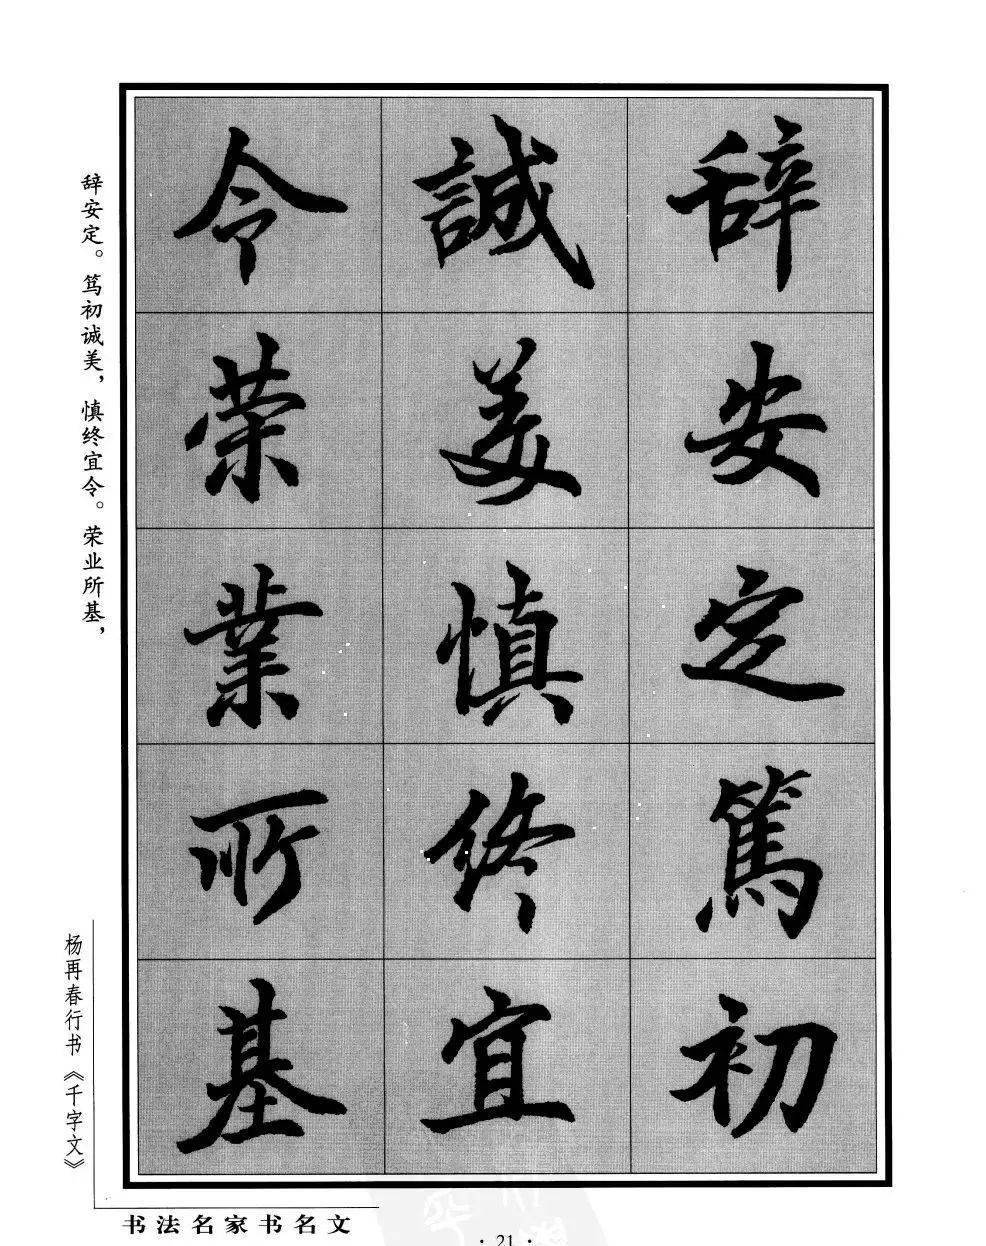 辞安定篤初
誠美慎终宜
令荣業所基
辞安定。笃初诚美，慎终宜令。荣业所基，
杨再春行书《千字文》
书法名家书名文
· 21 ·